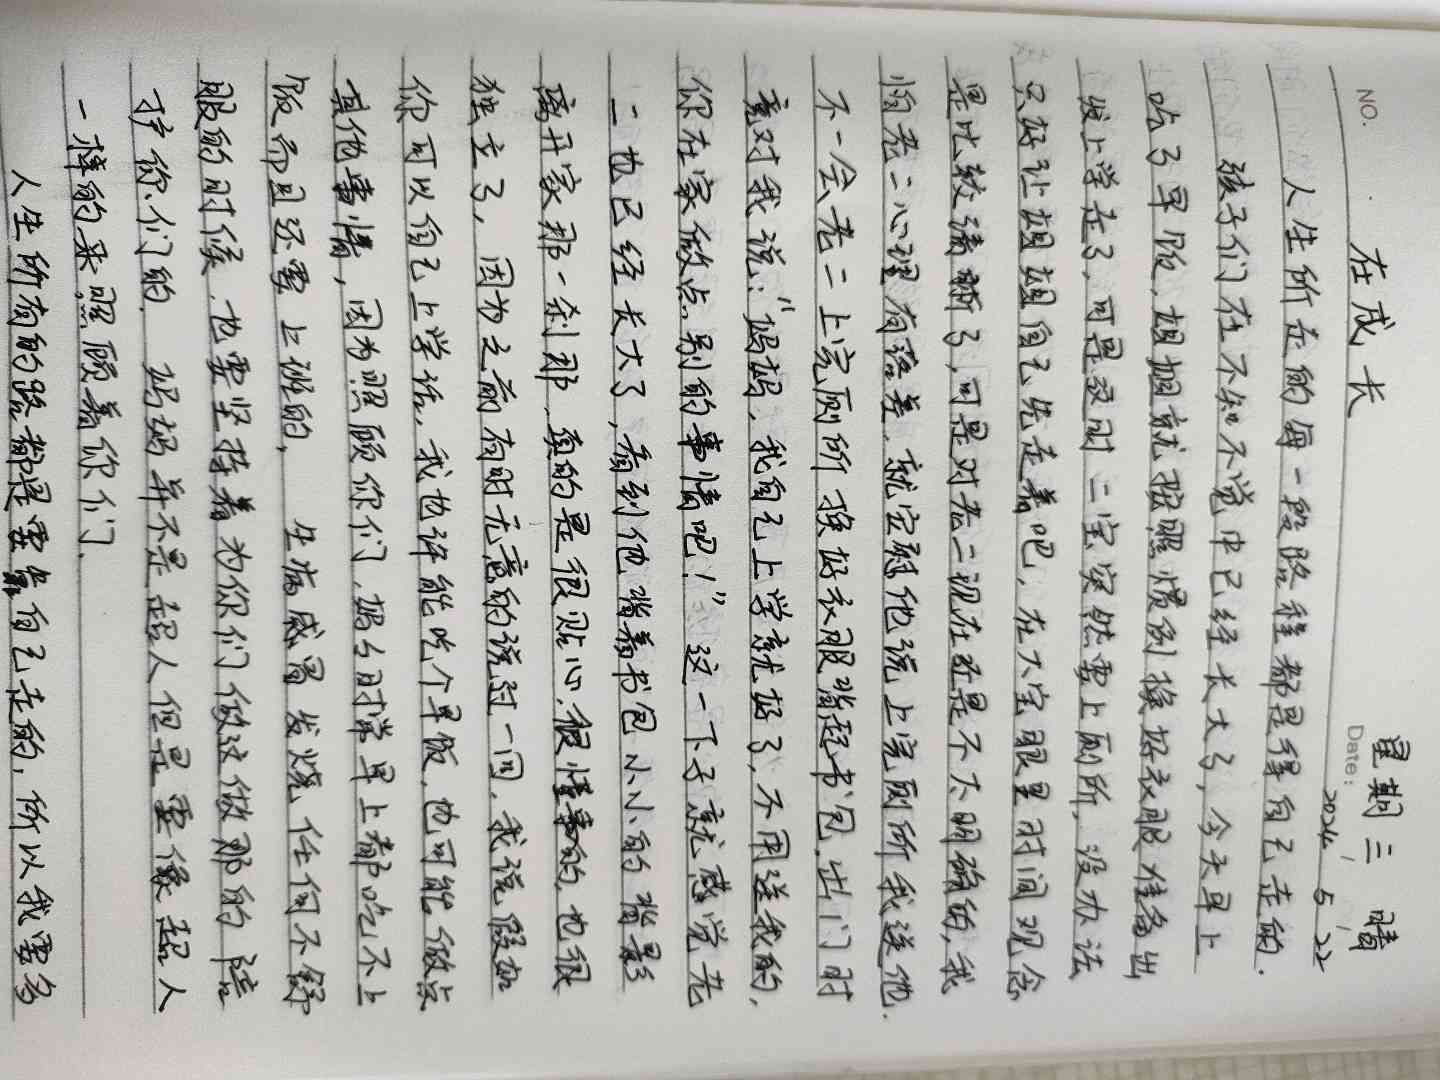 NO.
Date:
星期三 晴
2024 5 22
在成长
人生所走的每一段路程都是得自己走的.
孩子们在不知不觉中已经长大了,今天早上
吃了早饭,姐姐就按照惯例换好衣服准备出
发上学走了,可是这时二宝突然要上厕所,没办法
只好让姐姐自己先走着吧,在大宝眼里时间观念
是比较清晰了,可是对老二现在还是不太明确的,我
怕老二心理有落差,就安慰他说上完厕所我送他.
不一会老二上完厕所换好衣服背起书包,出门时
竟对我说:"妈妈,我自己上学就好了,不用送我的,
你在家做点别的事情吧!"这一下子就感觉老
二也已经长大了,看到他背着书包小小的背影
离开家那一刹那、真的是很贴心、很懂事的,也很
独立了,因为之前有时无意的说过一回,我说假如
你可以自己上学话,我也许能吃个早饭,也可能做点
其他事情,因为照顾你们,妈妈时常早上都吃不上
饭而且还要上班的, 生病感冒发烧任何不舒
服的时候、也要坚持着为你们做这做那的陪
护你们的. 妈妈并不是超人但是要像超人
一样的来照顾着你们.
人生所有的路都是要靠自己走的,所以我要多